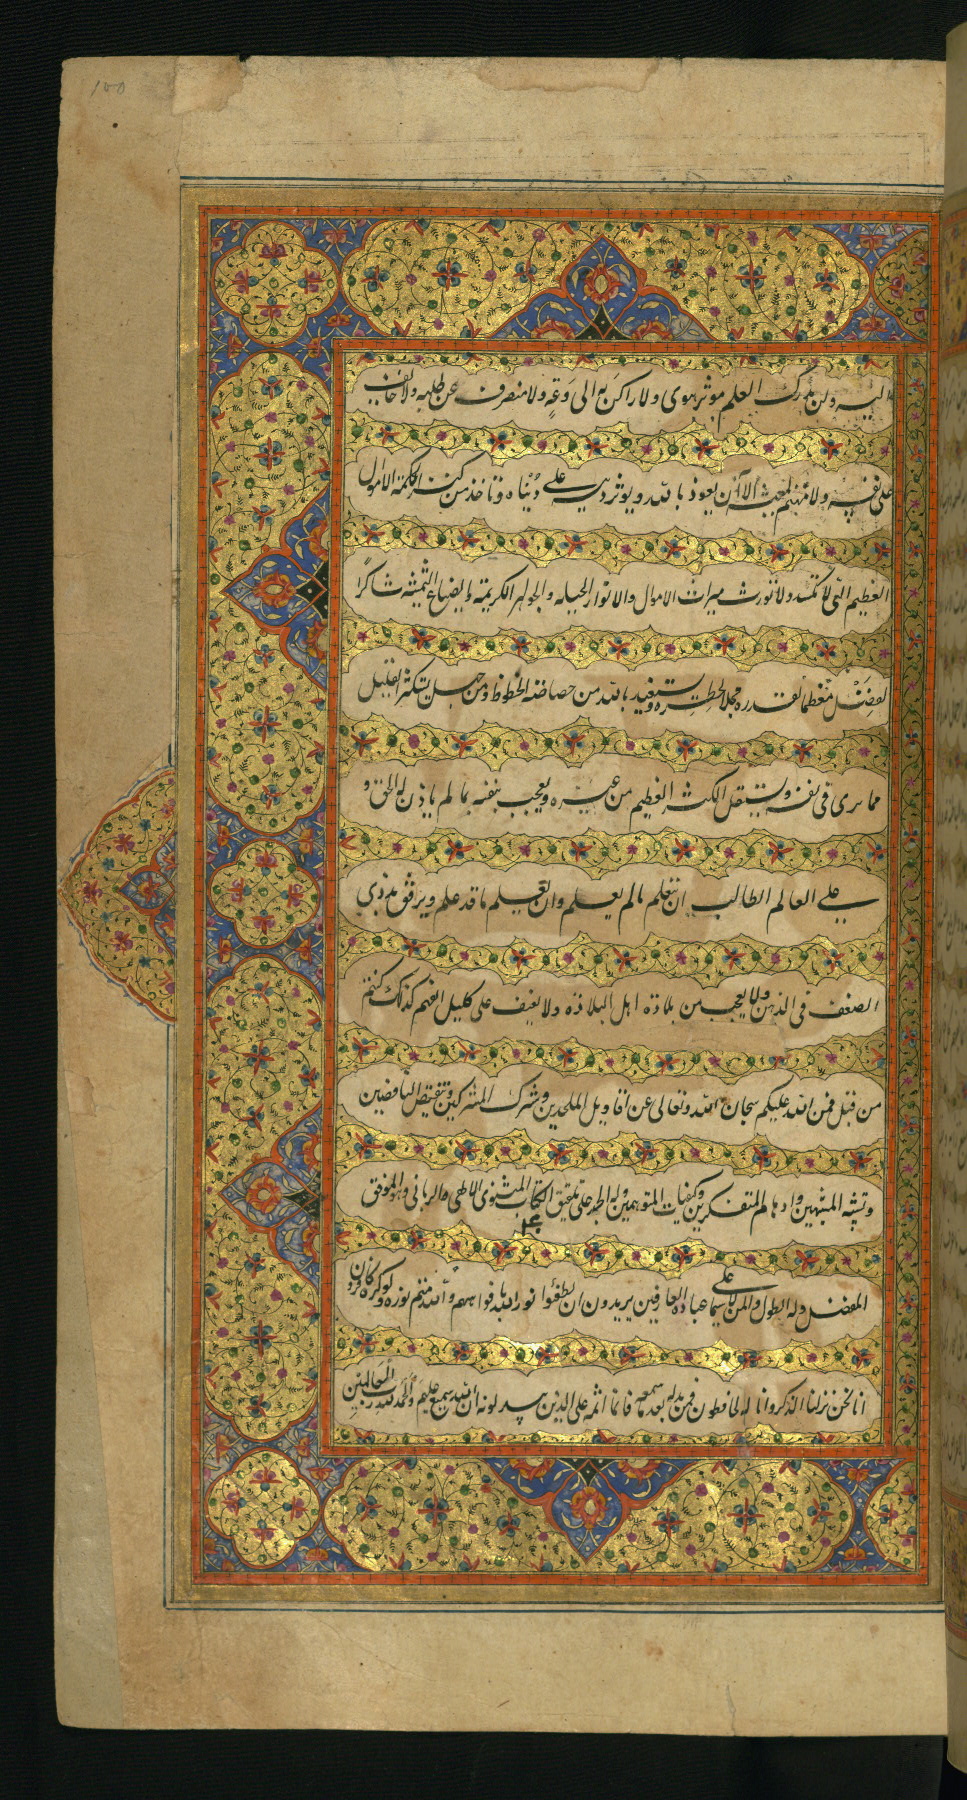 ١٥٥
اليه ولن يدرك العلم موثر هوى ولا راكن الى دعة ولا منصرف عن طلبه ولا خائف
على نفسه ولا مهتم لمعيشته الا ان يعوذ بالله ويوثر دينه على دنياه وياخذ من كنز الحكمة الاموال
العظيم التى لا تكسد ولا تورث ميراث الاموال والانوار الجليله والجواهر الكريمة والضياع الثمينة شاكرًا
لفضله معظما لقدره مجللا لخطره ويستعيذ بالله من خصاصة الخطوظ ومن جهل يستكثر القليل
مما يرى فى نفسه ويستقل الكثير العظيم من غيره ويعجب بنفسه بما لم ياذن له الحق و
على العالم الطالب ان يتعلم مالم يعلم وان يعلم ما قد علم ويرفق بذوى
الضعف فى الذهن ولا يعجب من بلادة اهل البلادة ولا يعنف على كليل الفهم كذلك كنتم
من قبل فمن الله عليكم سبحان الله وتعالى عن اقاويل الملحدين وشرك المشركين وتنقيص الناقصين
وتشبه المشبهين واوهام المتفكرين وكيفيات المتوهمين وله الحمد على تلفيق الكتاب المثنوى الالهى الربانى وهو الموفق
المفضل وله الطول والمن لا سيما على عباده العارفين يريدون ان يطفؤا نور الله بافواههم والله متم نوره ولو كره الكافرون
انا نحن نزلنا الذكر وانا له لحافظون فمن بدله بعد ما سمعه فانما اثمه على الذين يبدلونه ان الله سميع عليم والحمد لله رب العالمين